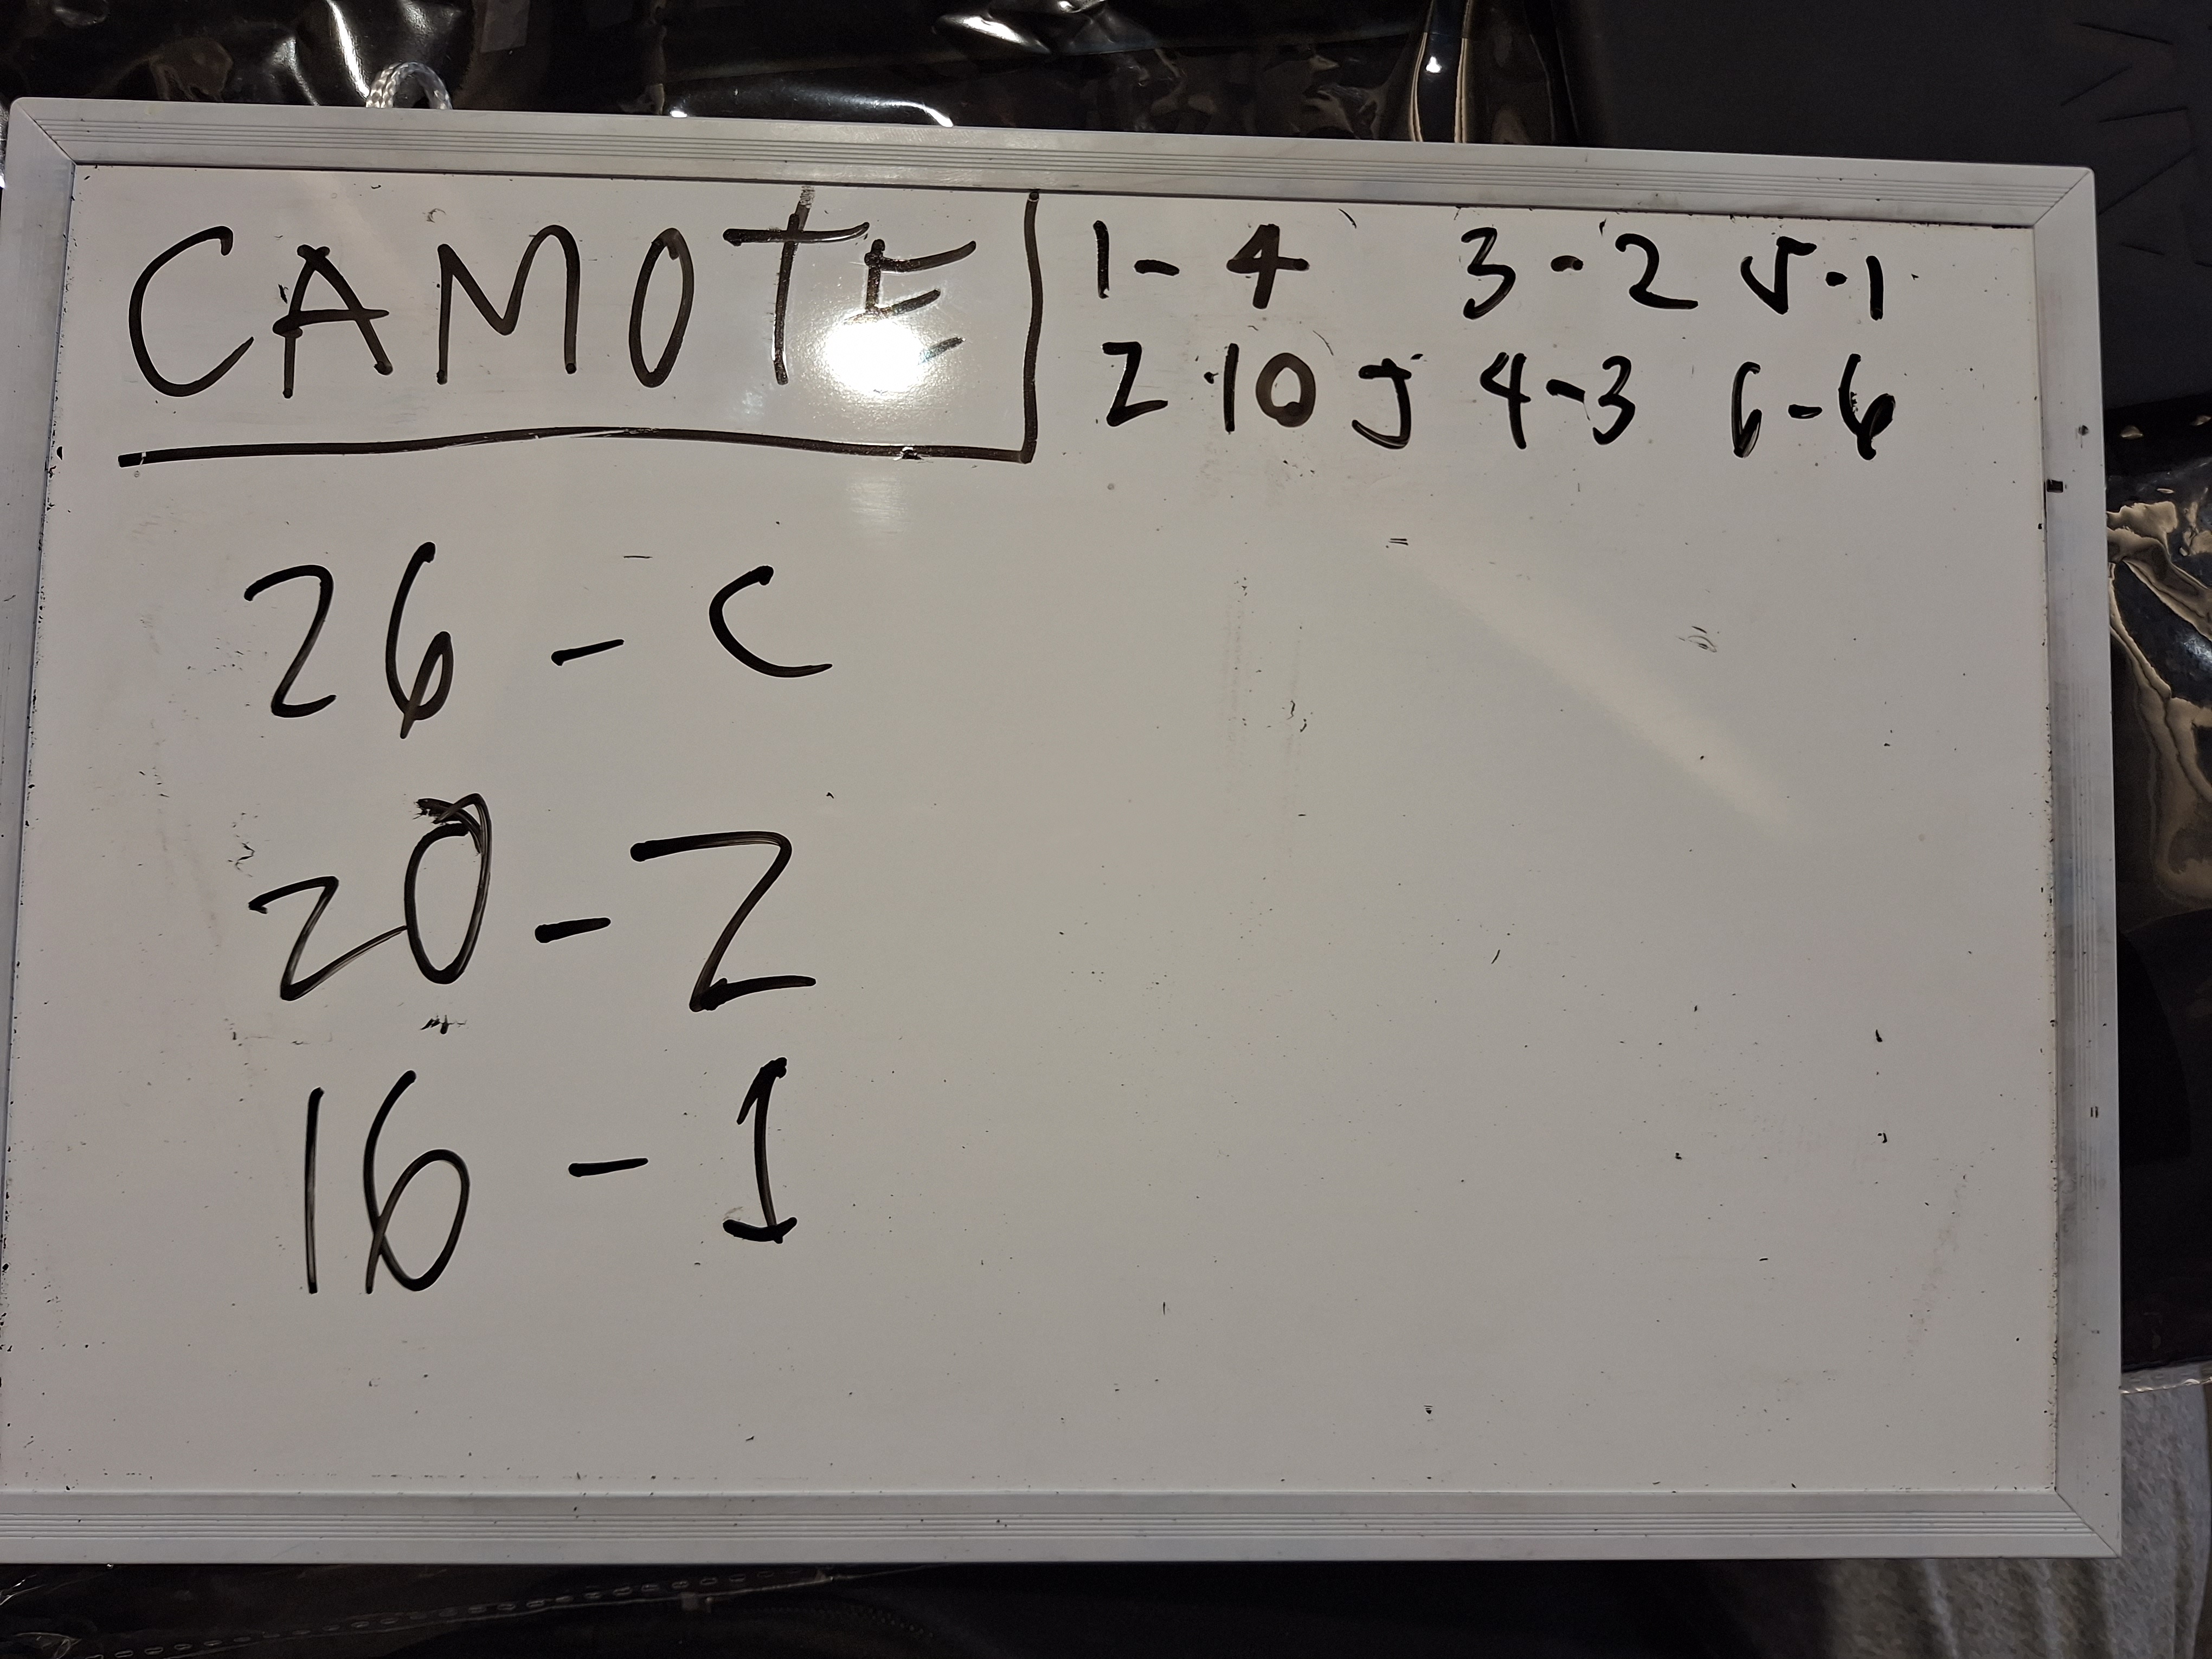 CAMOTE
1- 4 3-2 5-1
2-10 J 4-3 6-6
26 - C
20 - Z
16 - 1